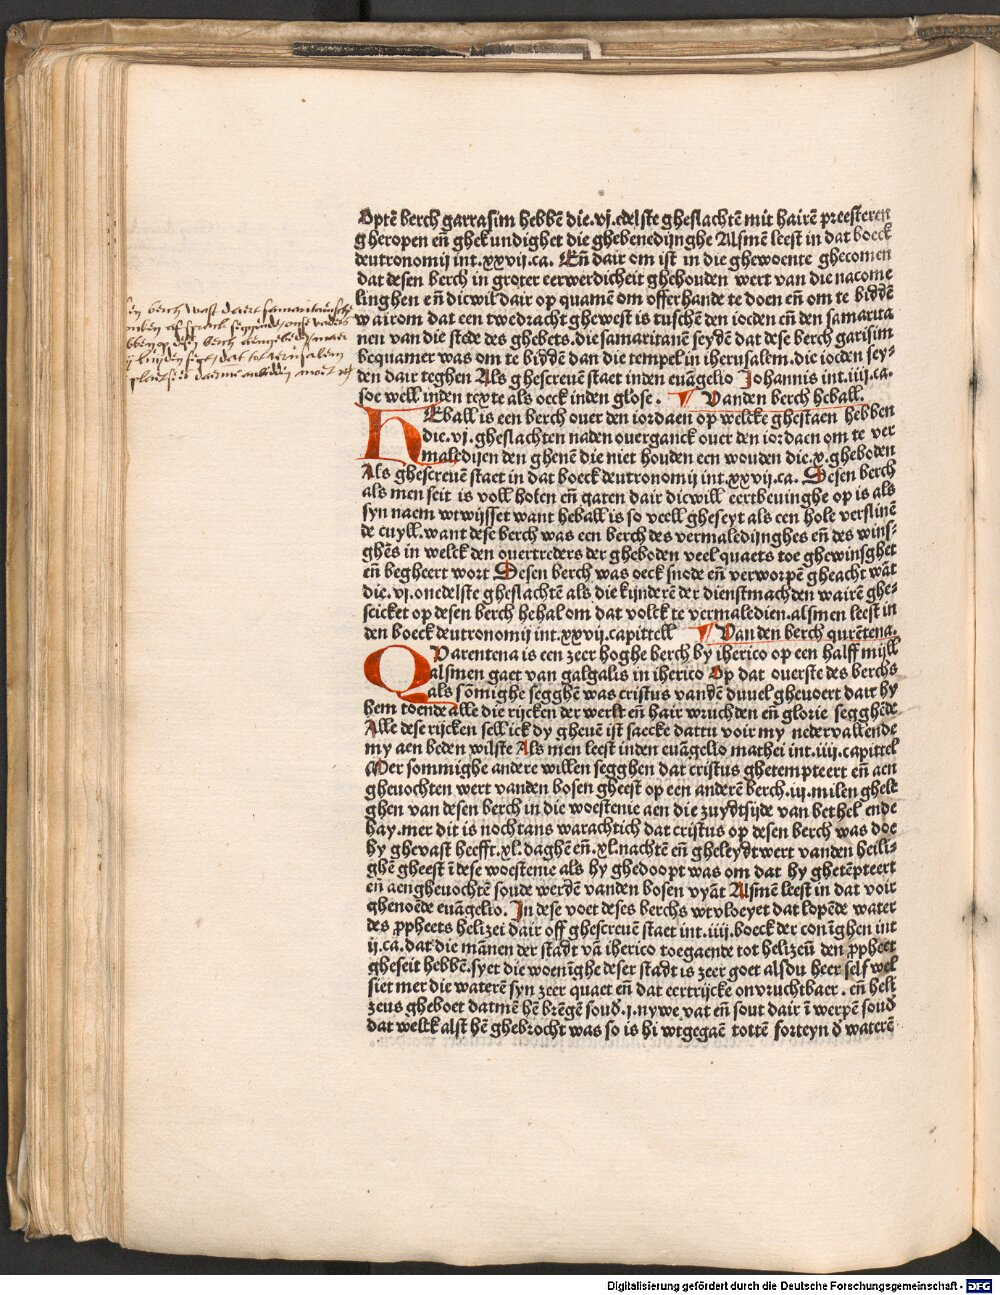 Optē berch garrasim hebbē die .vi. edelste gheslachtē mit hairē preesteren
gheropen eñ ghekundighet die ghebenedijnghe Alsmē leest in dat boeck
deutronomij int .xxvij. ca. Eñ dair om ist in die ghewoente ghecomen
dat desen berch in groter eerwerdicheit ghehouden wert van die nacome
linghen eñ dicwil dair op quamē om offerhande te doen eñ om te biddē
wairom dat een twedracht ghewest is tuschē den ioeden eñ den samarita
nen van die stede des ghebets. die samaritanē seydē dat dese berch garisim
bequamer was om te biddē dan die tempel in iherusalem. die ioeden sey-
den dair teghen Als ghescreuē staet inden euāgelio Johannis int .iiij. ca.
soe well inden texte als oeck inden glose. ¶ Vanden berch heball.
HEball is een berch ouer den iordaen op welcke ghestaen hebben
die .vi. gheslachten naden ouerganck ouer den iordaen om te ver
maledijen den ghenē die niet houden een wouden die .x. gheboden
Als ghescreuē staet in dat boeck deutronomij int .xxvij. ca. Desen berch
als men seit is voll holen eñ gaten dair dicwill eertbeuinghe op is als
syn naem wtwijsset want heball is so veell gheseyt als een hole verslinē
de cuyll. want dese berch was een berch des vermaledijnghes eñ des wins-
ghēs in welck den ouertreders der gheboden veel quaets toe ghewinsghet
eñ begheert wort Desen berch was oeck snode eñ verworpē gheacht wāt
die .vi. onedelste gheslachtē als die kijnderē der dienstmachden wairē ghe-
scicket op desen berch hebal om dat volck te vermaledien. alsmen leest in
den boeck deutronomij int .xxvij. capittell ¶ Van den berch qurētena.
QVarentena is een zeer hoghe berch by iherico op een halff mijll
alsmen gaet van galgalis in iherico Op dat ouerste des berchs
als sōmighe segghē was cristus vandē duuel gheuoert dair hy
hem toende alle die rijcken der werlt eñ hair wruchden eñ glorie segghēde
Alle dese rijcken sell ick dy gheuē ist saecke dattu voir my nedervallende
my aen beden wilste Als men leest inden euāgelio mathei int .iiij. capittel
Mer sommighe andere willen segghen dat cristus ghetempteert eñ aen
gheuochten wert vanden bosen gheest op een anderē berch .iij. milen ghele
ghen van desen berch in die woestenie aen die zuydtsijde van bethel ende
hay. mer dit is nochtans warachtich dat cristus op desen berch was doe
hy ghevast heefft .xl. daghē eñ .xl. nachtē eñ gheleydt wert vanden heili-
ghē gheest ī dese woestenie als hy ghedoopt was om dat hy ghetēpteert
eñ aengheuochtē soude werdē vanden bosen vyāt Alsmē leest in dat voir
ghenoēde euāgelio. In dese voet deses berchs wtvloeyet dat lopēde water
des ꝓpheets helizei dair off ghescreuē staet int .iiij. boeck der conīghen int
ij. ca. dat die māren der stadt vā iherico toegaende tot helizeū den ꝓpheet
gheseit hebbē. syet die woenīghe deser stadt is zeer goet alsdu heer self wel
siet mer die waterē syn zeer quaet eñ dat eertrijcke onvruchtbaer. eñ heli
zeus gheboet datmē hē brēgē soud̄ .i. nywe vat eñ sout dair ī werpē soud̄
dat welck alst hē ghebrocht was so is hi wtgegaē tottē forteyn d̄ waterē
Digitalisierung gefördert durch die Deutsche Forschungsgemeinschaft - DFG